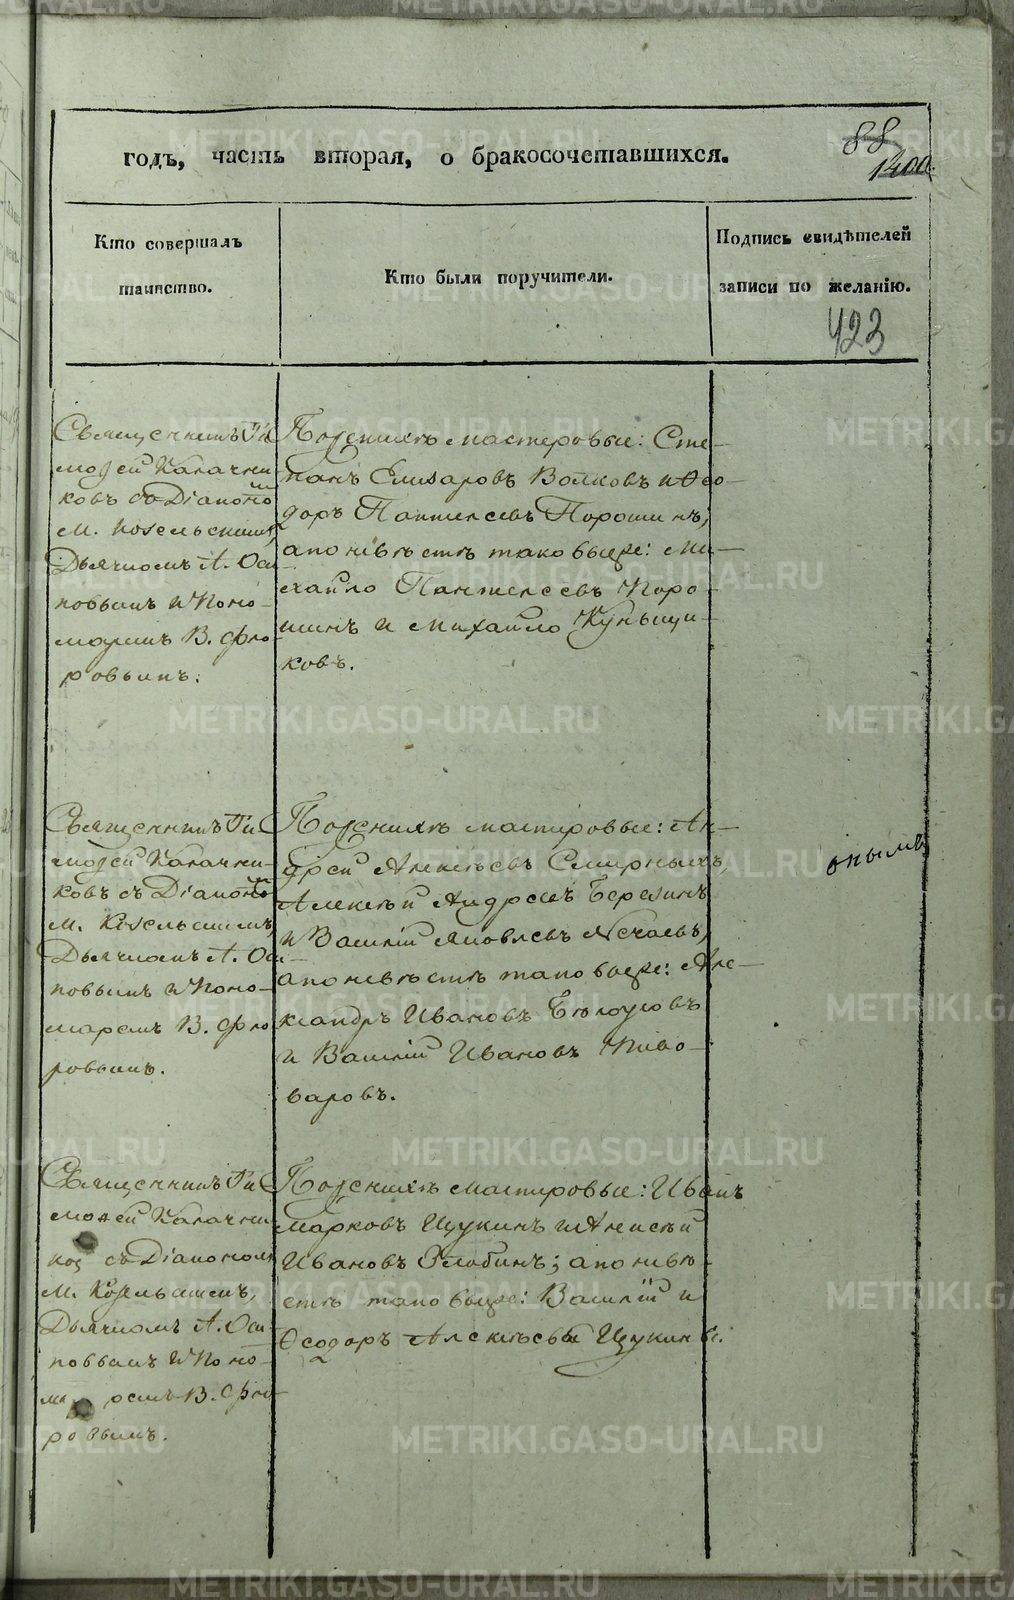 годъ, часть вторая, о бракосочетавшихся.
88
1400.
Кто совершалъ
таинство.
Кто были поручители.
Подпись свидѣтелей
записи по желанію.
423
Священникъ Ти
моѳей Калачни
ковъ съ Діакономъ
М. Козельскимъ,
Дьячкомъ А. Оси
повымъ и Поно-
маремъ В. Фло-
ровымъ.
По женихѣ мастеровые: Сте-
панъ Елизаровъ Волковъ и Ѳео-
доръ Пантелеевъ Порошинъ;
а по невѣстѣ таковыеже: Ми-
хайло Пантелеевъ Поро-
шинъ и Михайло Куньщи-
ковъ.
Священникъ Ти
моѳей Калачни-
ковъ съ Діакономъ
М. Козельскимъ,
Дьячкомъ А. Оси-
повымъ и Поно-
маремъ В. Фло
ровымъ.
По женихѣ мастеровые: Ан-
дрей Алексѣевъ Смирныхъ,
Алексѣй Андреевъ Березинъ
и Василій Яковлевъ Нечаевъ,
а по невѣстѣ таковыеже: Але-
ксандръ Ивановъ Бѣлоусовъ
и Василій Ивановъ Пиво-
варовъ.
Священникъ Ти
моѳей Калачни
ко съ Діакономъ
М. Козельскимъ,
Дьячкомъ А. Оси-
повымъ и Поно-
ма ремъ В. Фло-
ровымъ.
По женихѣ мастеровые: Иванъ
Марковъ Щукинъ и Алексѣй
Ивановъ Злобинъ; а по невѣ-
стѣ таковыеже: Василій и
Ѳеодоръ Алексѣевы Щукины.
METRIKI.GASO-URAL.RU